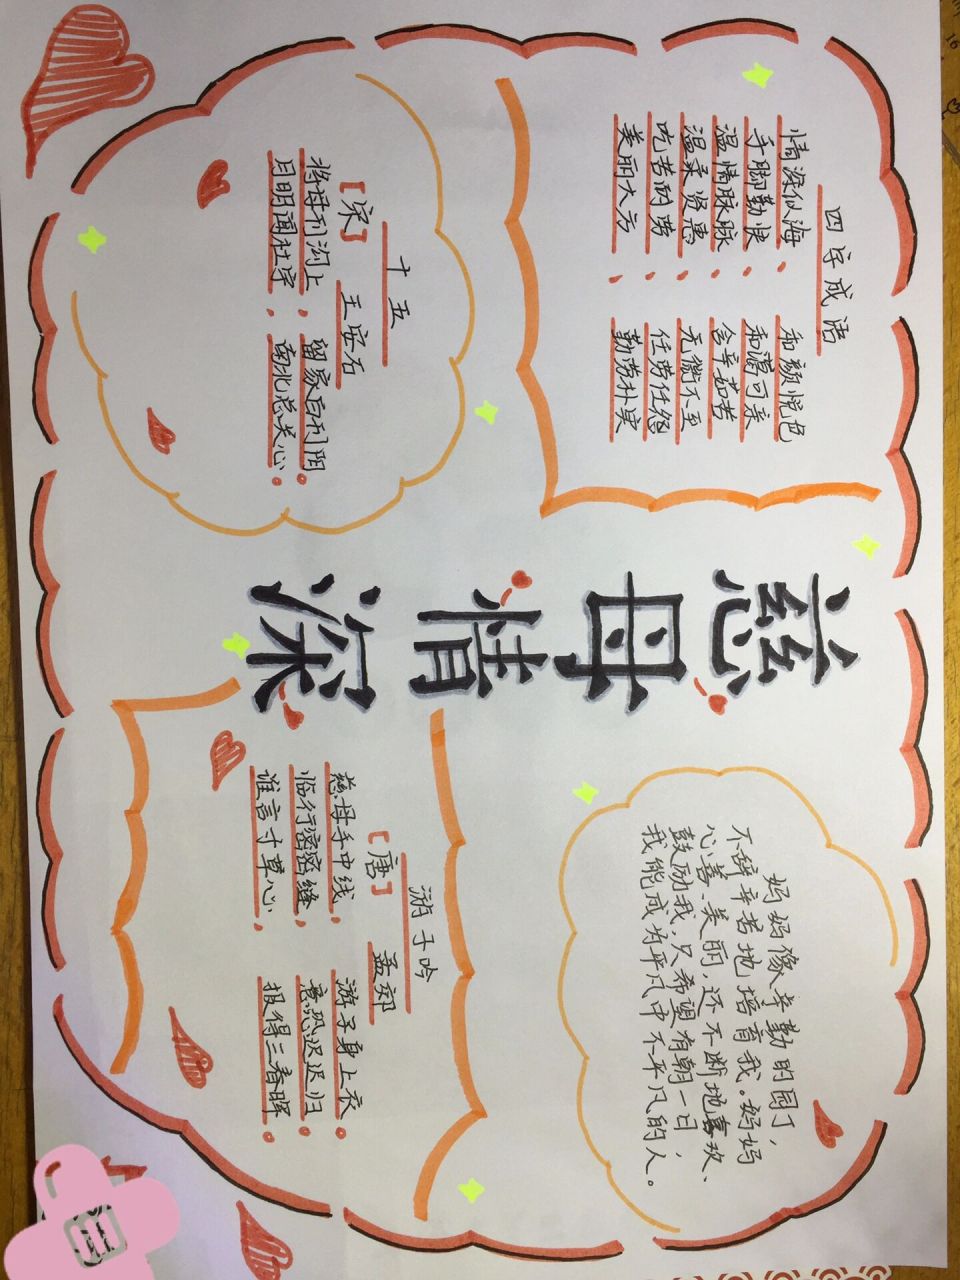 四字成语
情深似海、和颜悦色
手脚勤快、和蔼可亲
温情脉脉、含辛茹苦
温柔贤惠、无微不至
吃苦耐劳、任劳任怨
美丽大方、勤劳朴实
妈妈像辛勤的园丁，
不辞辛苦地培育我。妈妈
心善、美丽，还不断地喜欢、
鼓励我，只希望有朝一日，
我能成为平凡中不平凡的人。
慈母情深
十五
[宋] 王安石
将母刊沟上，留家白刊阴。
月明闻杜宇，南北总关心。
游子吟
[唐] 孟郊
慈母手中线，游子身上衣。
临行密密缝，意恐迟迟归。
谁言寸草心，报得三春晖。